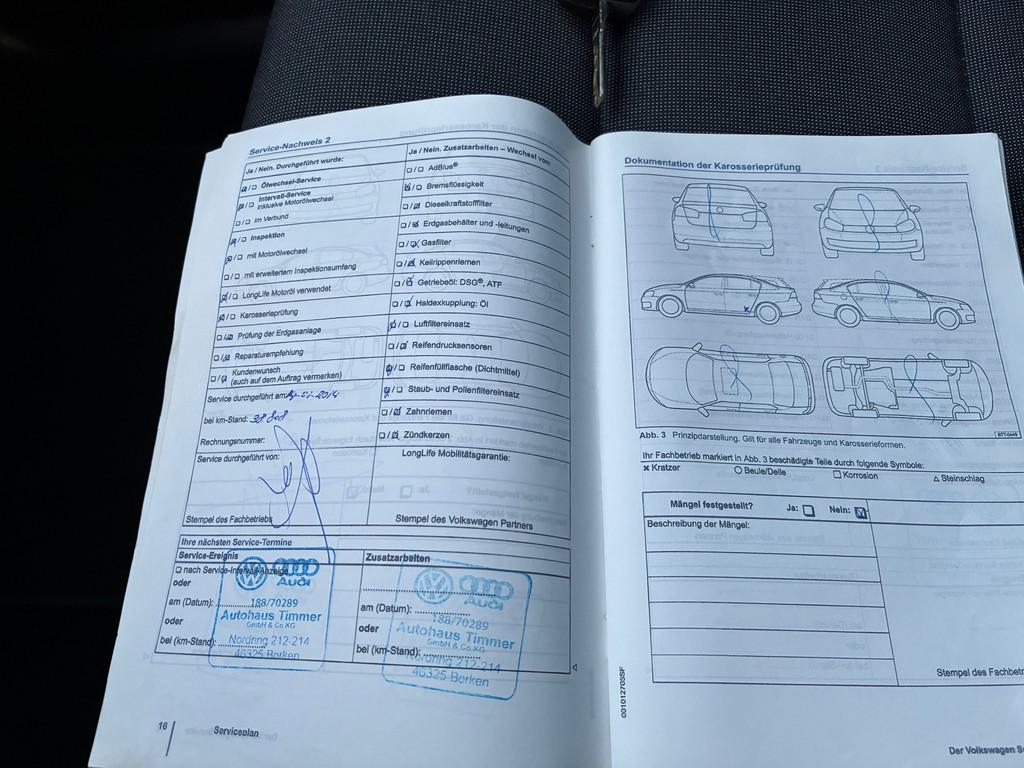 Service-Nachweis 2
Ja / Nein. Durchgeführt wurde:
Ölwechsel-Service
Intervall-Service
inklusive Motorölwechsel
im Verbund
Inspektion
mit Motorölwechsel
mit erweitertem Inspektionsumfang
LongLife Motoröl verwendet
Karosserieprüfung
Prüfung der Erdgasanlage
Reparaturempfehlung
Kundenwunsch
(auch auf dem Auftrag vermerken)
Service durchgeführt am:
bei km-Stand: 38.808
Rechnungsnummer:
Service durchgeführt von:
Stempel des Fachbetriebs
Ja / Nein. Zusatzarbeiten – Wechsel von:
AdBlue®
Bremsflüssigkeit
Dieselkraftstofffilter
Erdgasbehälter und -leitungen
Gasfilter
Keilrippenriemen
Getriebeöl: DSG®, ATF
Haldexkupplung: Öl
Luftfiltereinsatz
Reifendrucksensoren
Reifenfüllflasche (Dichtmittel)
Staub- und Pollenfiltereinsatz
Zahnriemen
Zündkerzen
LongLife Mobilitätsgarantie:
Stempel des Volkswagen Partners
Ihre nächsten Service-Termine
Service-Ereignis
nach Service-Intervall-Anzeige
oder
am (Datum):
oder
bei (km-Stand):
Audi
188/70289
Autohaus Timmer
GmbH & Co KG
Nordring 212-214
46325 Borken
Zusatzarbeiten
am (Datum):
oder
bei (km-Stand):
Audi
188/70289
Autohaus Timmer
GmbH & Co KG
Nordring 212-214
46325 Borken
16
Serviceplan
Dokumentation der Karosserieprüfung
Abb. 3 Prinzipdarstellung. Gilt für alle Fahrzeuge und Karosserieformen.
Ihr Fachbetrieb markiert in Abb. 3 beschädigte Teile durch folgende Symbole:
Kratzer
Beule/Delle
Korrosion
Steinschlag
Mängel festgestellt? Ja: Nein:
Beschreibung der Mängel:
Stempel des Fachbetr
Der Volkswagen S